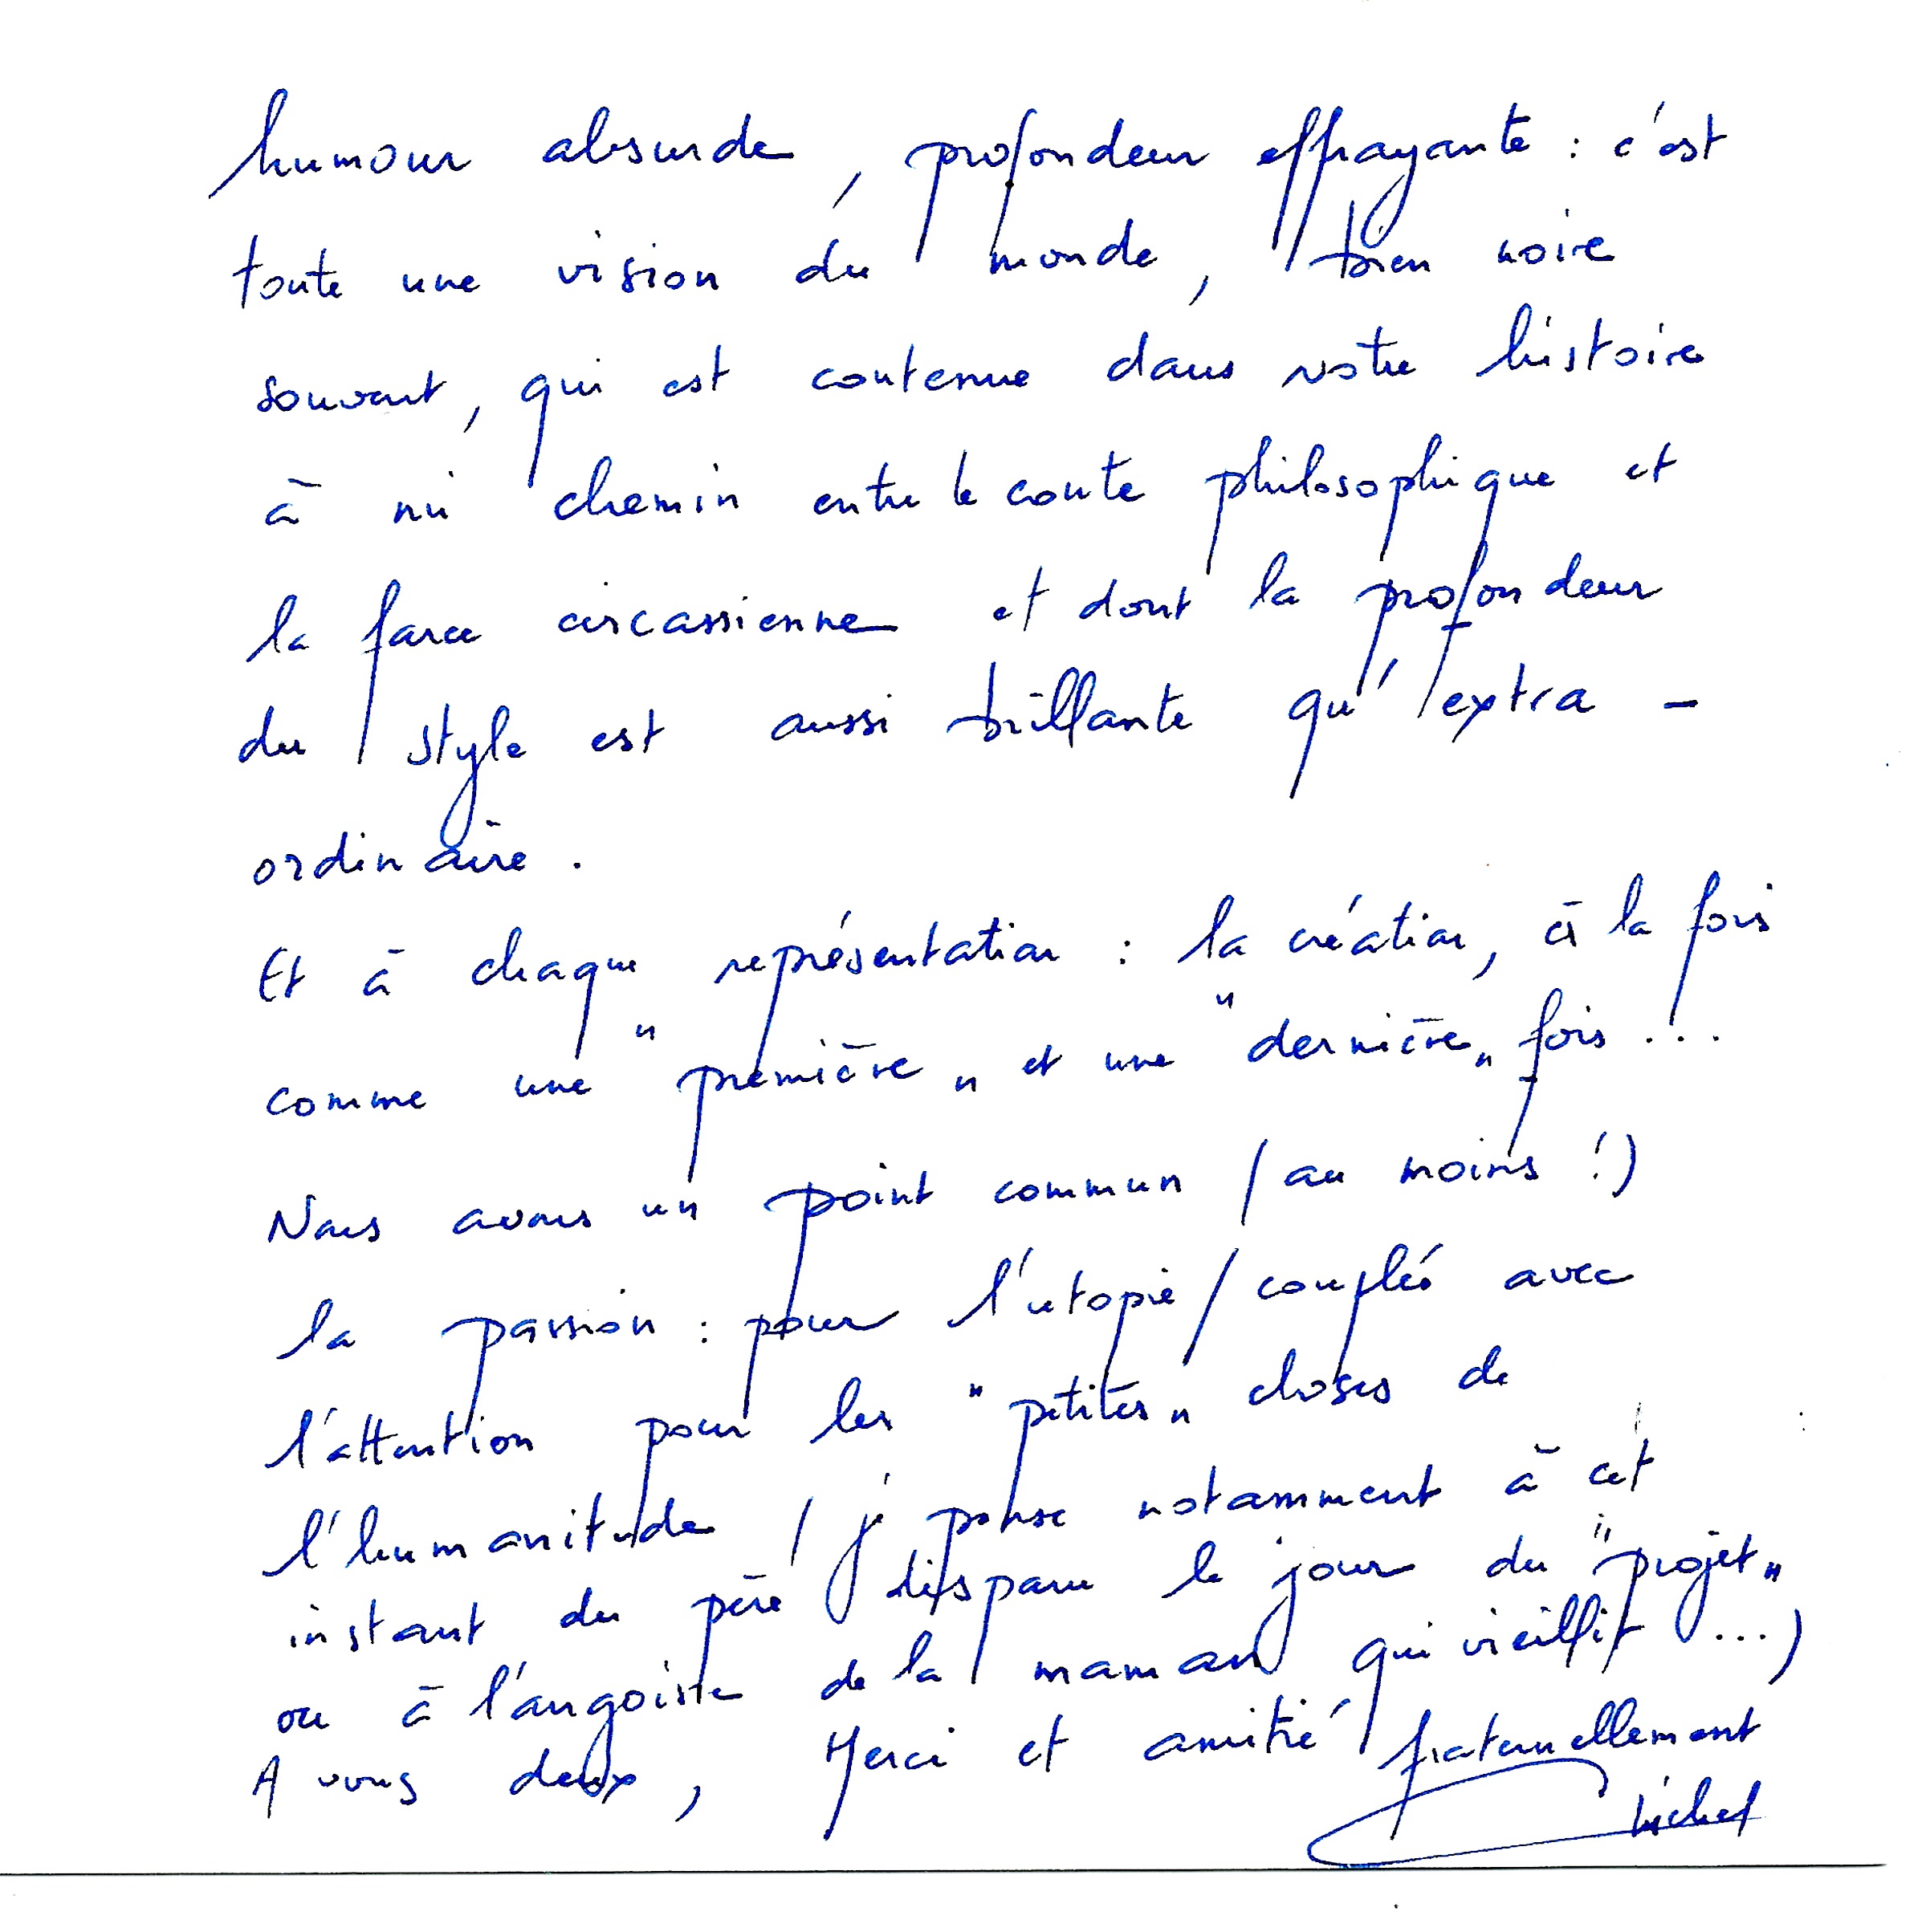 humour absurde, profondeur effrayante : c'est
toute une vision du monde, bien noire
souvent, qui est contenue dans votre histoire
à mi chemin entre le conte philosophique et
la farce circassienne et dont la profondeur
du style est aussi brillante qu'extra-
ordinaire.
Et à chaque représentation : la création, à la fois
comme une "première" et une "dernière" fois...
Nous avons un point commun (au moins !)
la passion : pour l'utopie / couplée avec
l'attention pour les "petites" choses de
l'humanitude (j' pense notamment à cet
instant du père disparu le jour du "projet"
ou à l'angoisse de la maman qui vieillit ...)
A vous deux, Merci et amitié fraternellement
Michel